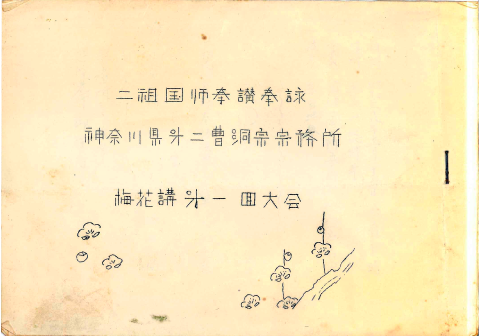 二祖国师奉讃奉詠
神奈川県㐧二曹洞宗宗務所
梅花講㐧一回大会